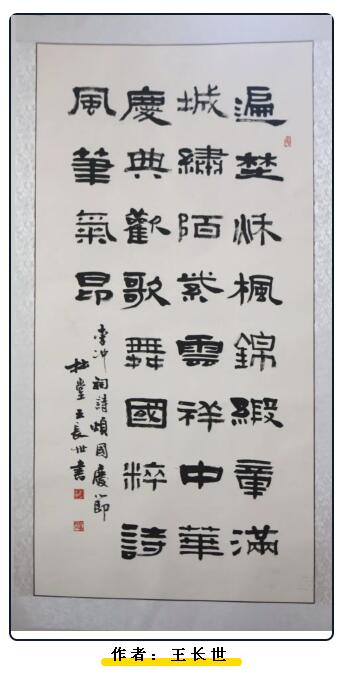 遍埜秋楓錦緞章滿
城繡陌紫雲祥中華
慶典歡歌舞國粹詩
風筆氣昂
李冲祠詩頌國慶節
拙堂王長世書
作者：王长世